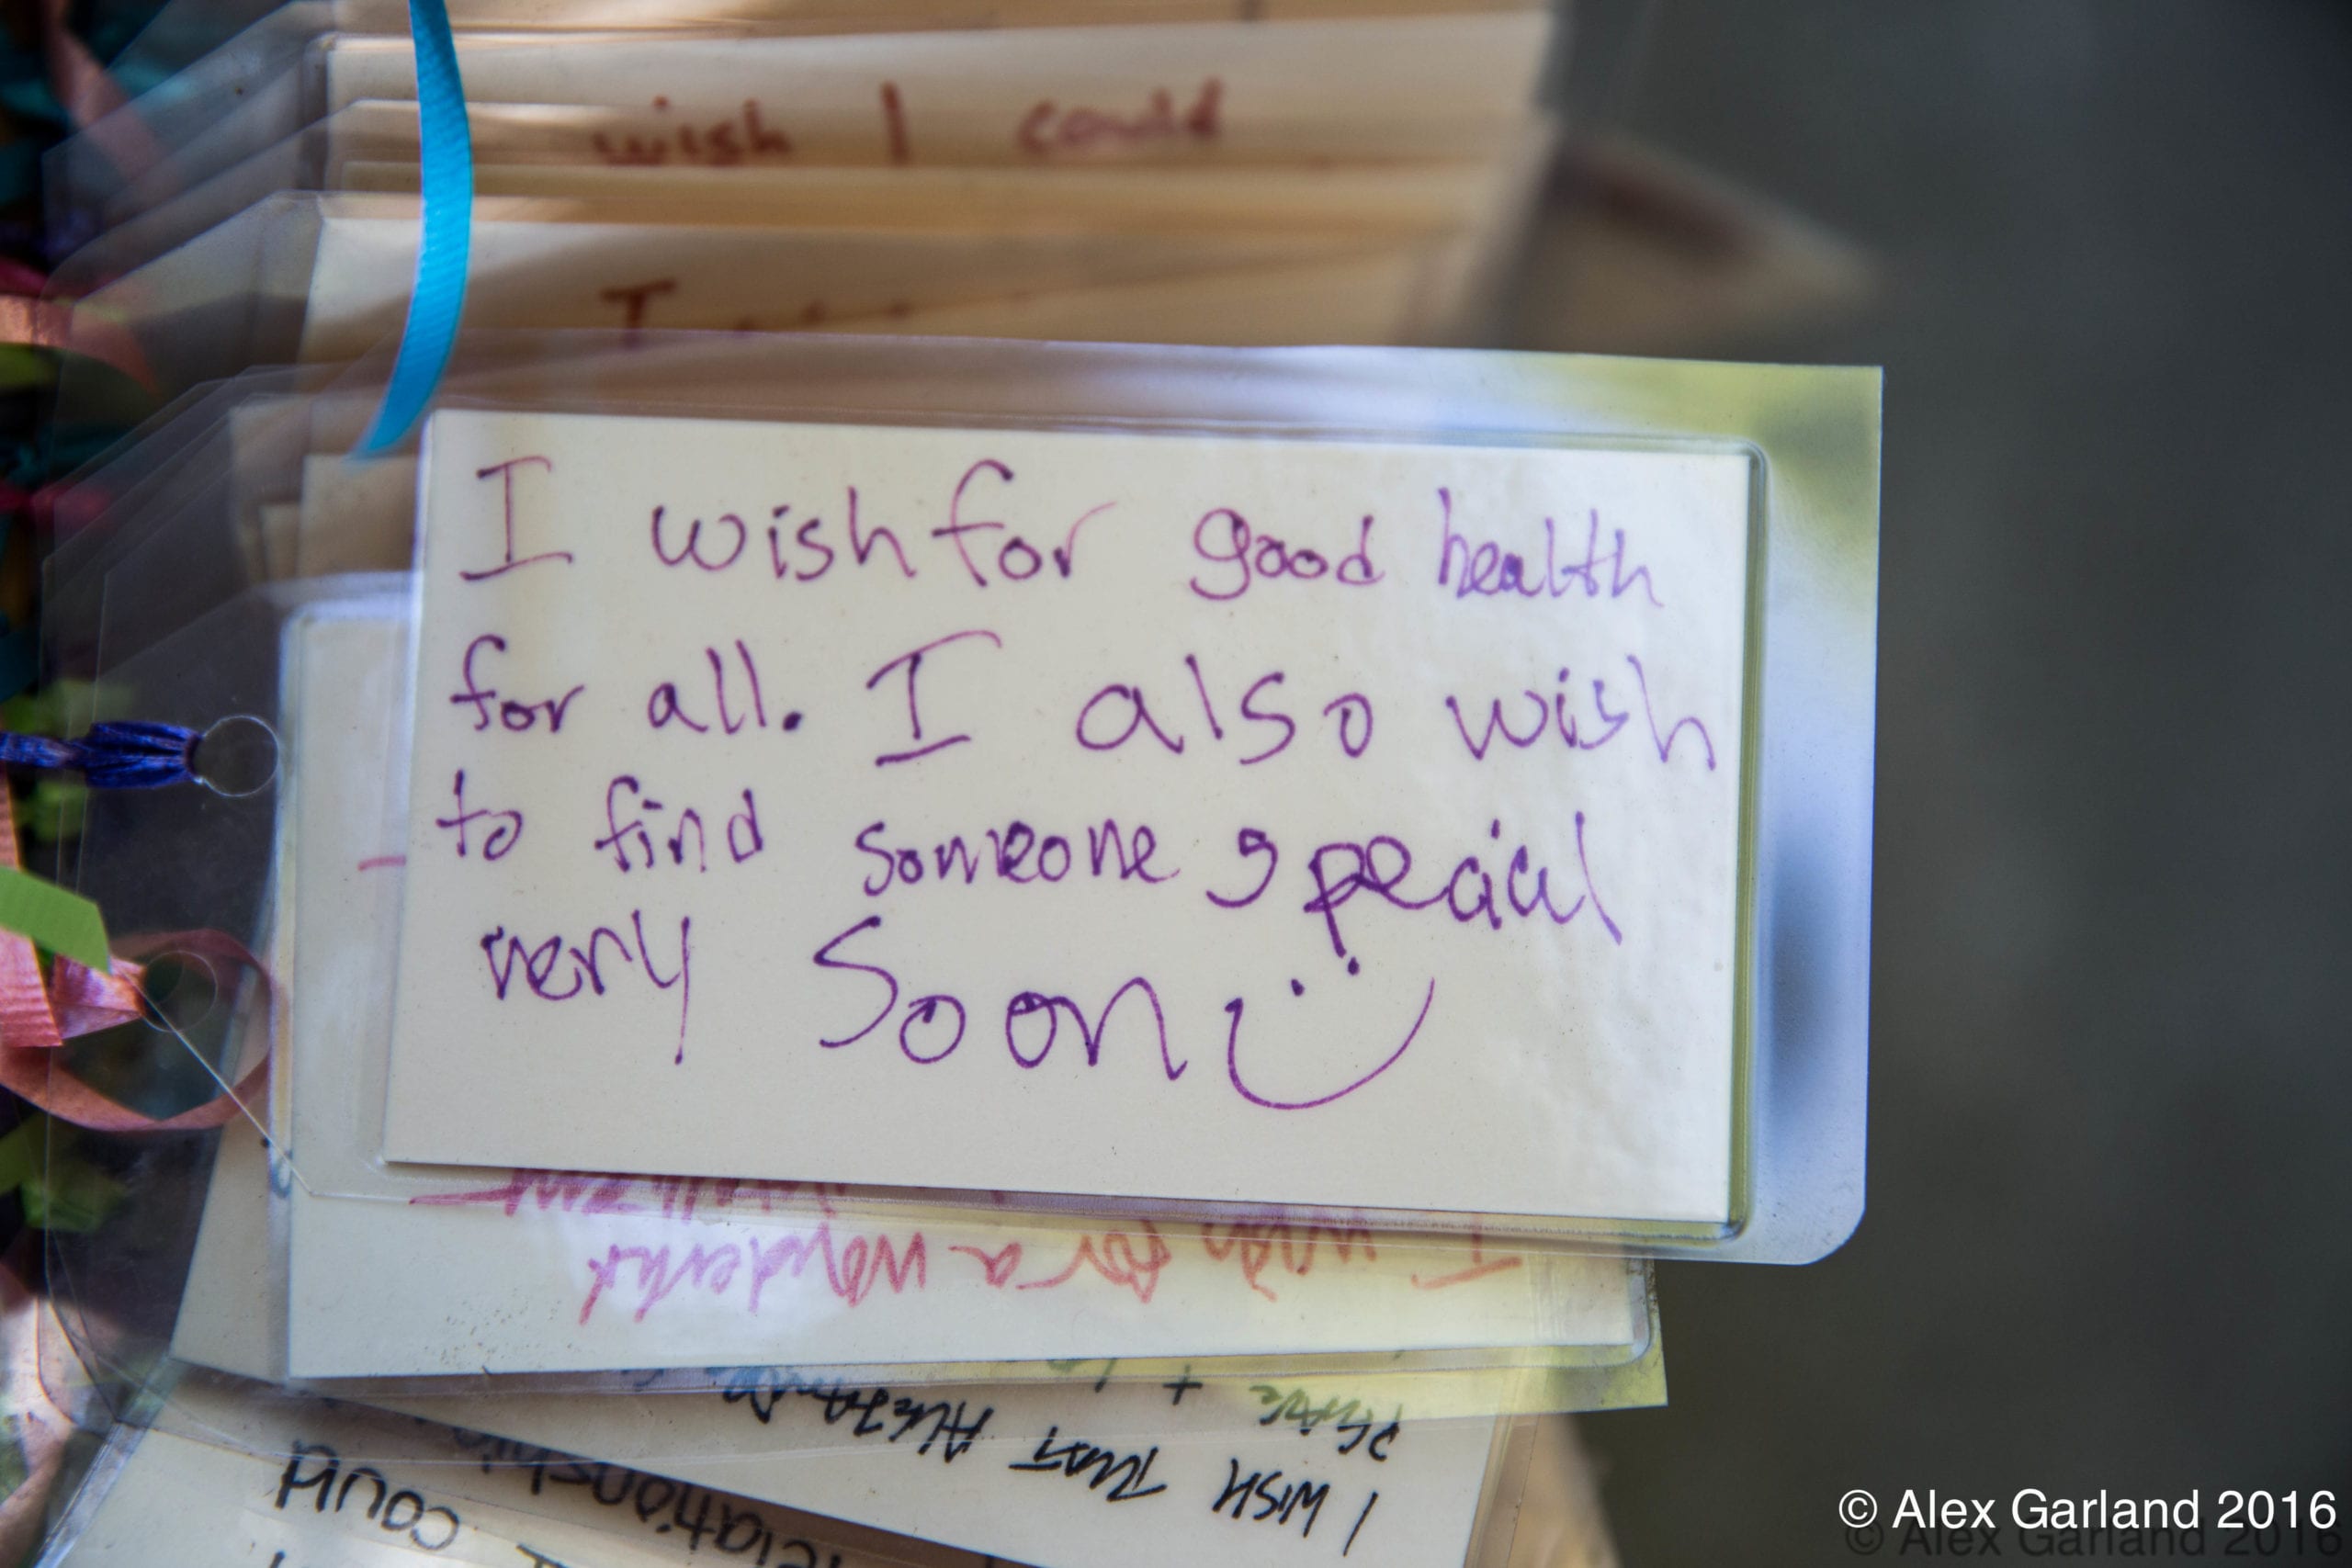 wish I could
I
I wish for good health
for all. I also wish
to find someone special
very soon
I wish for a wonderful
PEACE +
I WISH THAT ALEJANDRO
relationship
could
© Alex Garland 2016